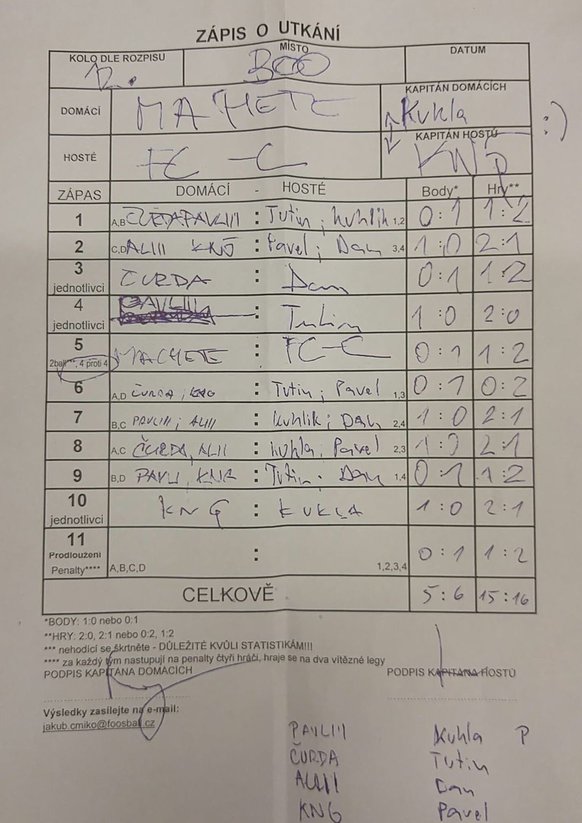 ZÁPIS O UTKÁNÍ
KOLO DLE ROZPISU MÍSTO DATUM
12. BOO
DOMÁCÍ MACHETE KAPITÁN DOMÁCÍCH Kuhla :)
HOSTÉ FC-C KAPITÁN HOSTŮ
ZÁPAS DOMÁCÍ - HOSTÉ Body* Hry**
1 A,B ČURDA PAVLIII : Tutin, kuhlik 1,2 0:1 1:2
2 C,D ALIII KNG : Pavel, Dan 3,4 1:0 2:1
3 jednotlivci ČURDA : Dan 0:1 1:2
4 jednotlivci PAVLIII : Tutin 1:0 2:0
5 2balls***, 4 proti 4 MACHETE : FC-C 0:1 1:2
6 A,D ČURDA, KNG : Tutin, Pavel 1,3 0:1 0:2
7 B,C PAVLIII, ALIII : kuhlik, Dan 2,4 1:0 2:1
8 A,C ČURDA, ALII : kuhla, Pavel 2,3 1:0 2:1
9 B,D PAVLI, KNG : Tutin, Dan 1,4 0:1 1:2
10 jednotlivci KNG : KUKLA 1:0 2:1
11 Prodloužení Penalty**** A,B,C,D : 1,2,3,4 0:1 1:2
CELKOVĚ 5:6 15:16
*BODY: 1:0 nebo 0:1
**HRY: 2:0, 2:1 nebo 0:2, 1:2
*** nehodící se škrtněte - DŮLEŽITÉ KVŮLI STATISTIKÁM!!!
**** za každý tým nastupují na penalty čtyři hráči, hraje se na dva vítězné legy
PODPIS KAPITÁNA DOMÁCÍCH PODPIS KAPITÁNA HOSTŮ
Výsledky zasílejte na e-mail:
jakub.cmiko@foosball.cz
PAVLIII Kuhla P
ČURDA Tutin
ALIII Dan
KNG Pavel